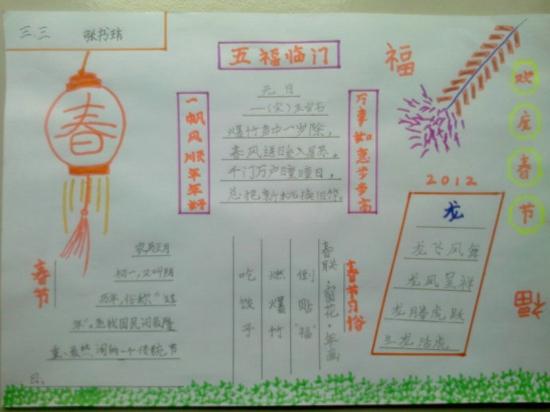 三、三 张书洁
五福临门
一帆风顺年年好
万事如意步步高
元日
—(宋)王安石
爆竹声中一岁除,
春风送暖入屠苏。
千门万户曈曈日,
总把新桃换旧符。
福
欢庆春节
春
2012
龙
龙飞凤舞
龙凤呈祥
龙腾虎跃
生龙活虎
福
春节
农历正月
初一,又叫阴
历年,俗称“过
年”。是我国民间最隆
重、最热闹的一个传统节
日。
春节习俗
春联·窗花·年画
倒贴“福”
燃爆竹
吃饺子